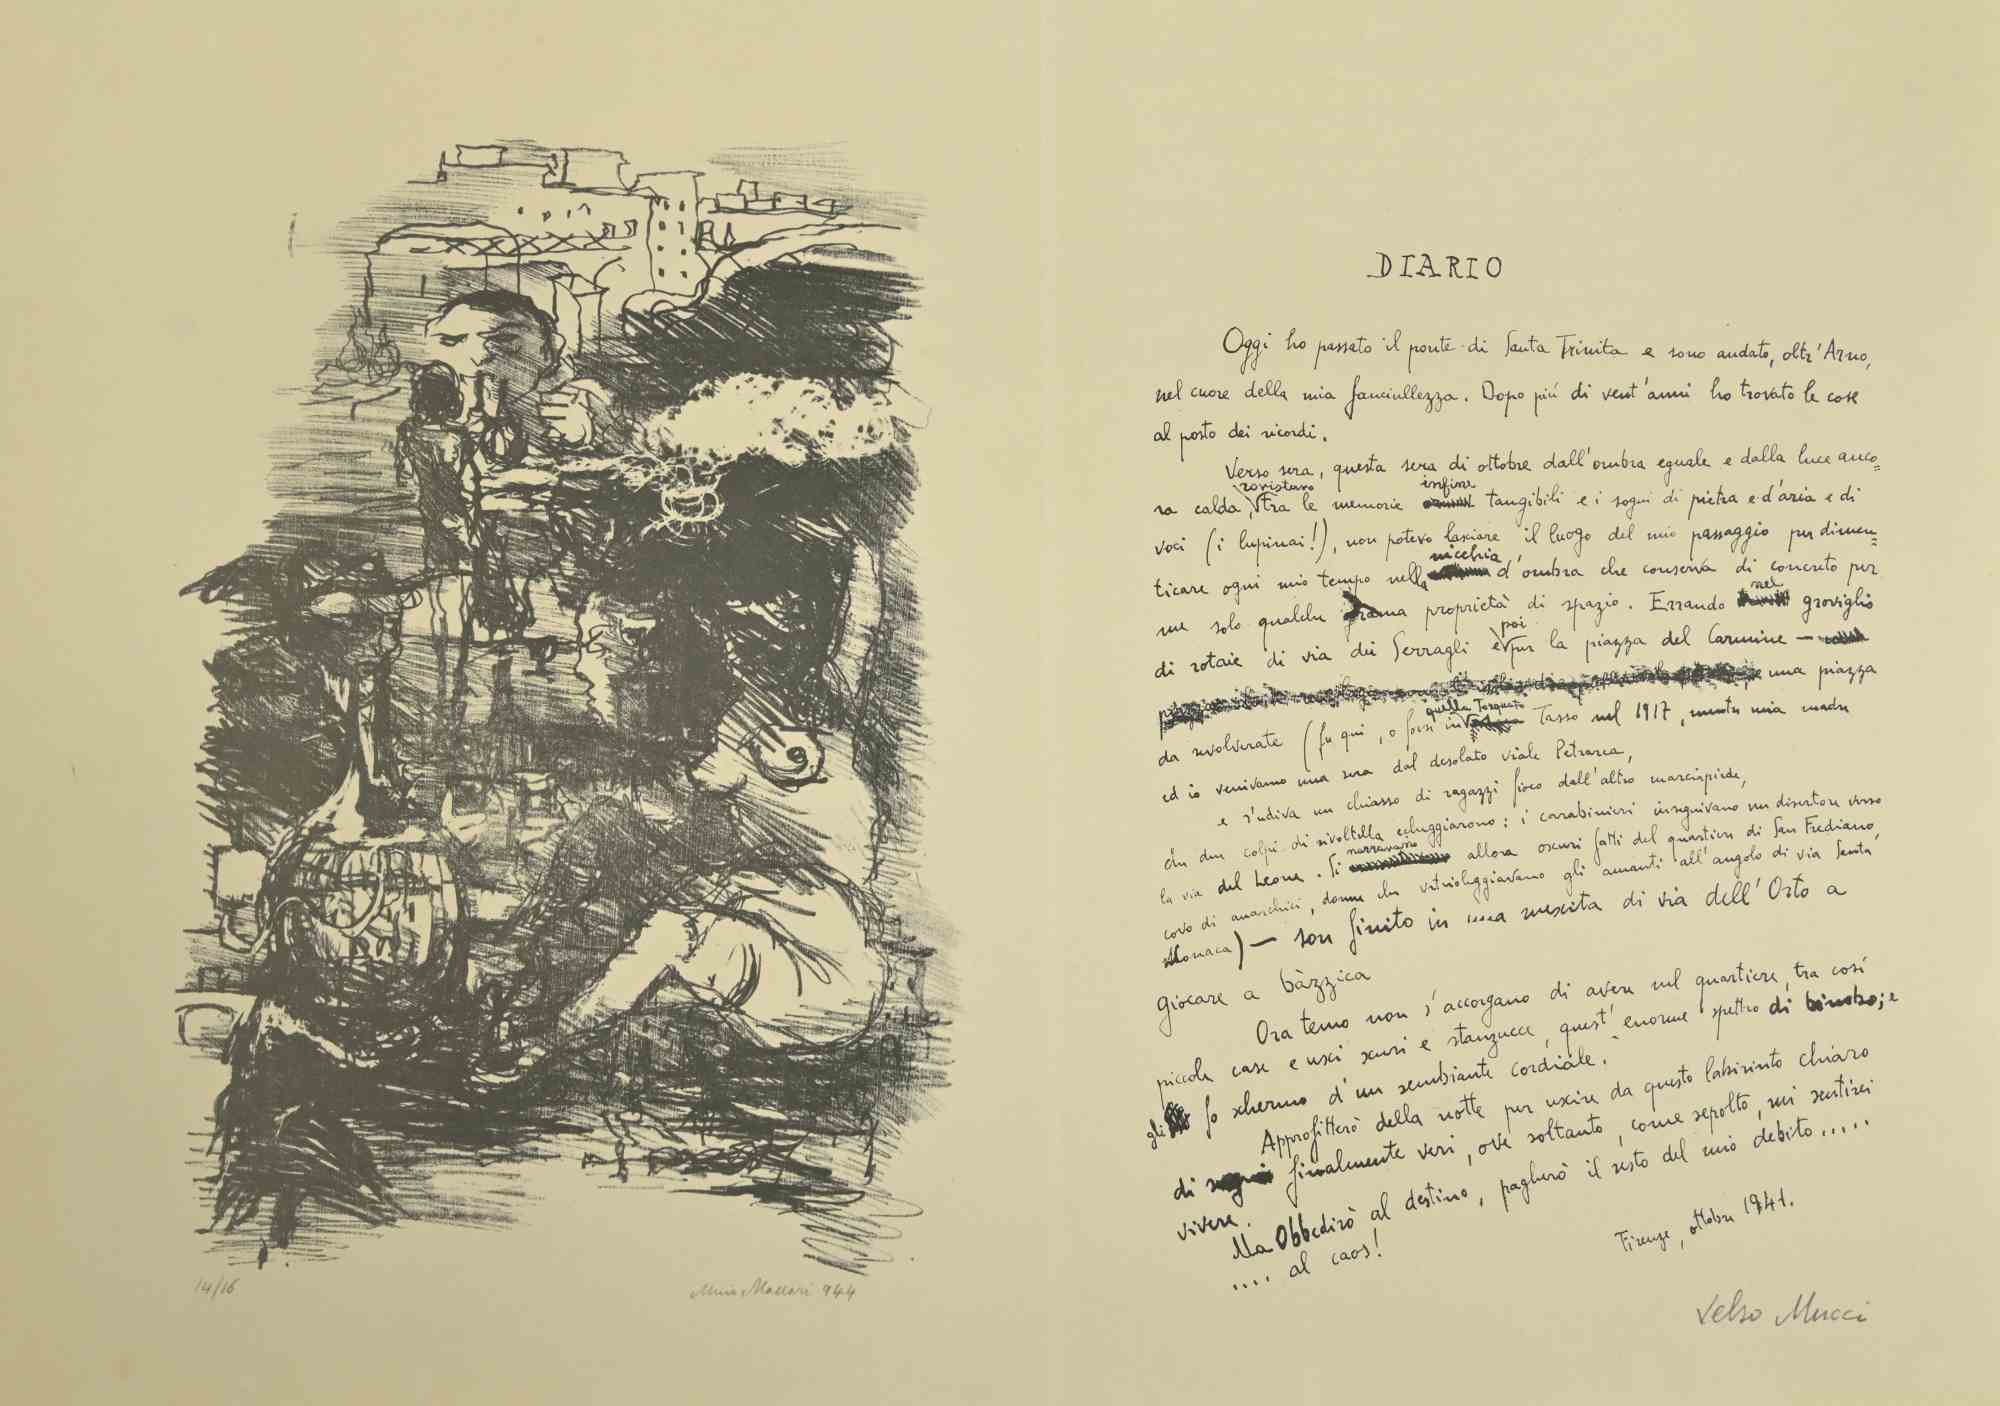 14/16
Mino Maccari 944
DIARIO
Oggi ho passato il ponte di Santa Trinita e sono andato, oltr'Arno,
nel cuore della mia fanciullezza. Dopo più di vent'anni ho trovato le cose
al posto dei ricordi.
Verso sera, questa sera di ottobre dall'ombra eguale e dalla luce anco=
rovistavo infine
ra calda, tra le memorie tangibili e i sogni di pietra e d'aria e di
voci (i lupinai!), non potevo lasciare il luogo del mio passaggio per dimen=
nicchia
ticare ogni mio tempo nella d'ombra che conserva di concreto per
me solo qualche grama proprietà di spazio. Errando nel groviglio
di rotaie di via dei Serragli e poi per la piazza del Carmine —
una piazza
quella Torquato
da revolverate (fu qui, o forse in Tasso nel 1917, mentre mia madre
ed io venivamo una sera dal desolato viale Petrarca,
e s'udiva un chiasso di ragazzi fioco dall'altro marciapiede,
che due colpi di rivoltella echeggiarono: i carabinieri inseguivano un disertore verso
narravano
la via del Leone. Si allora oscuri fatti del quartiere di San Frediano,
covo di anarchici, donne che vetrioleggiavano gli amanti all'angolo di via Santa
Monaca) — son finito in una mescita di via dell'Orto a
giocare a bàzzica
Ora temo non s'accorgano di avere nel quartiere, tra così
piccole case e usci scuri e stanzucce, quest'enorme spettro di bimbo; e
gli fo schermo d'un sembiante cordiale.
Approfitterò della notte per uscire da questo labirinto chiaro
di finalmente veri, ove soltanto, come sepolto, mi sentirei
vivere.
Ma Obbedirò al destino, pagherò il resto del mio debito.....
.... al caos!
Firenze, ottobre 1941.
Velso Mucci